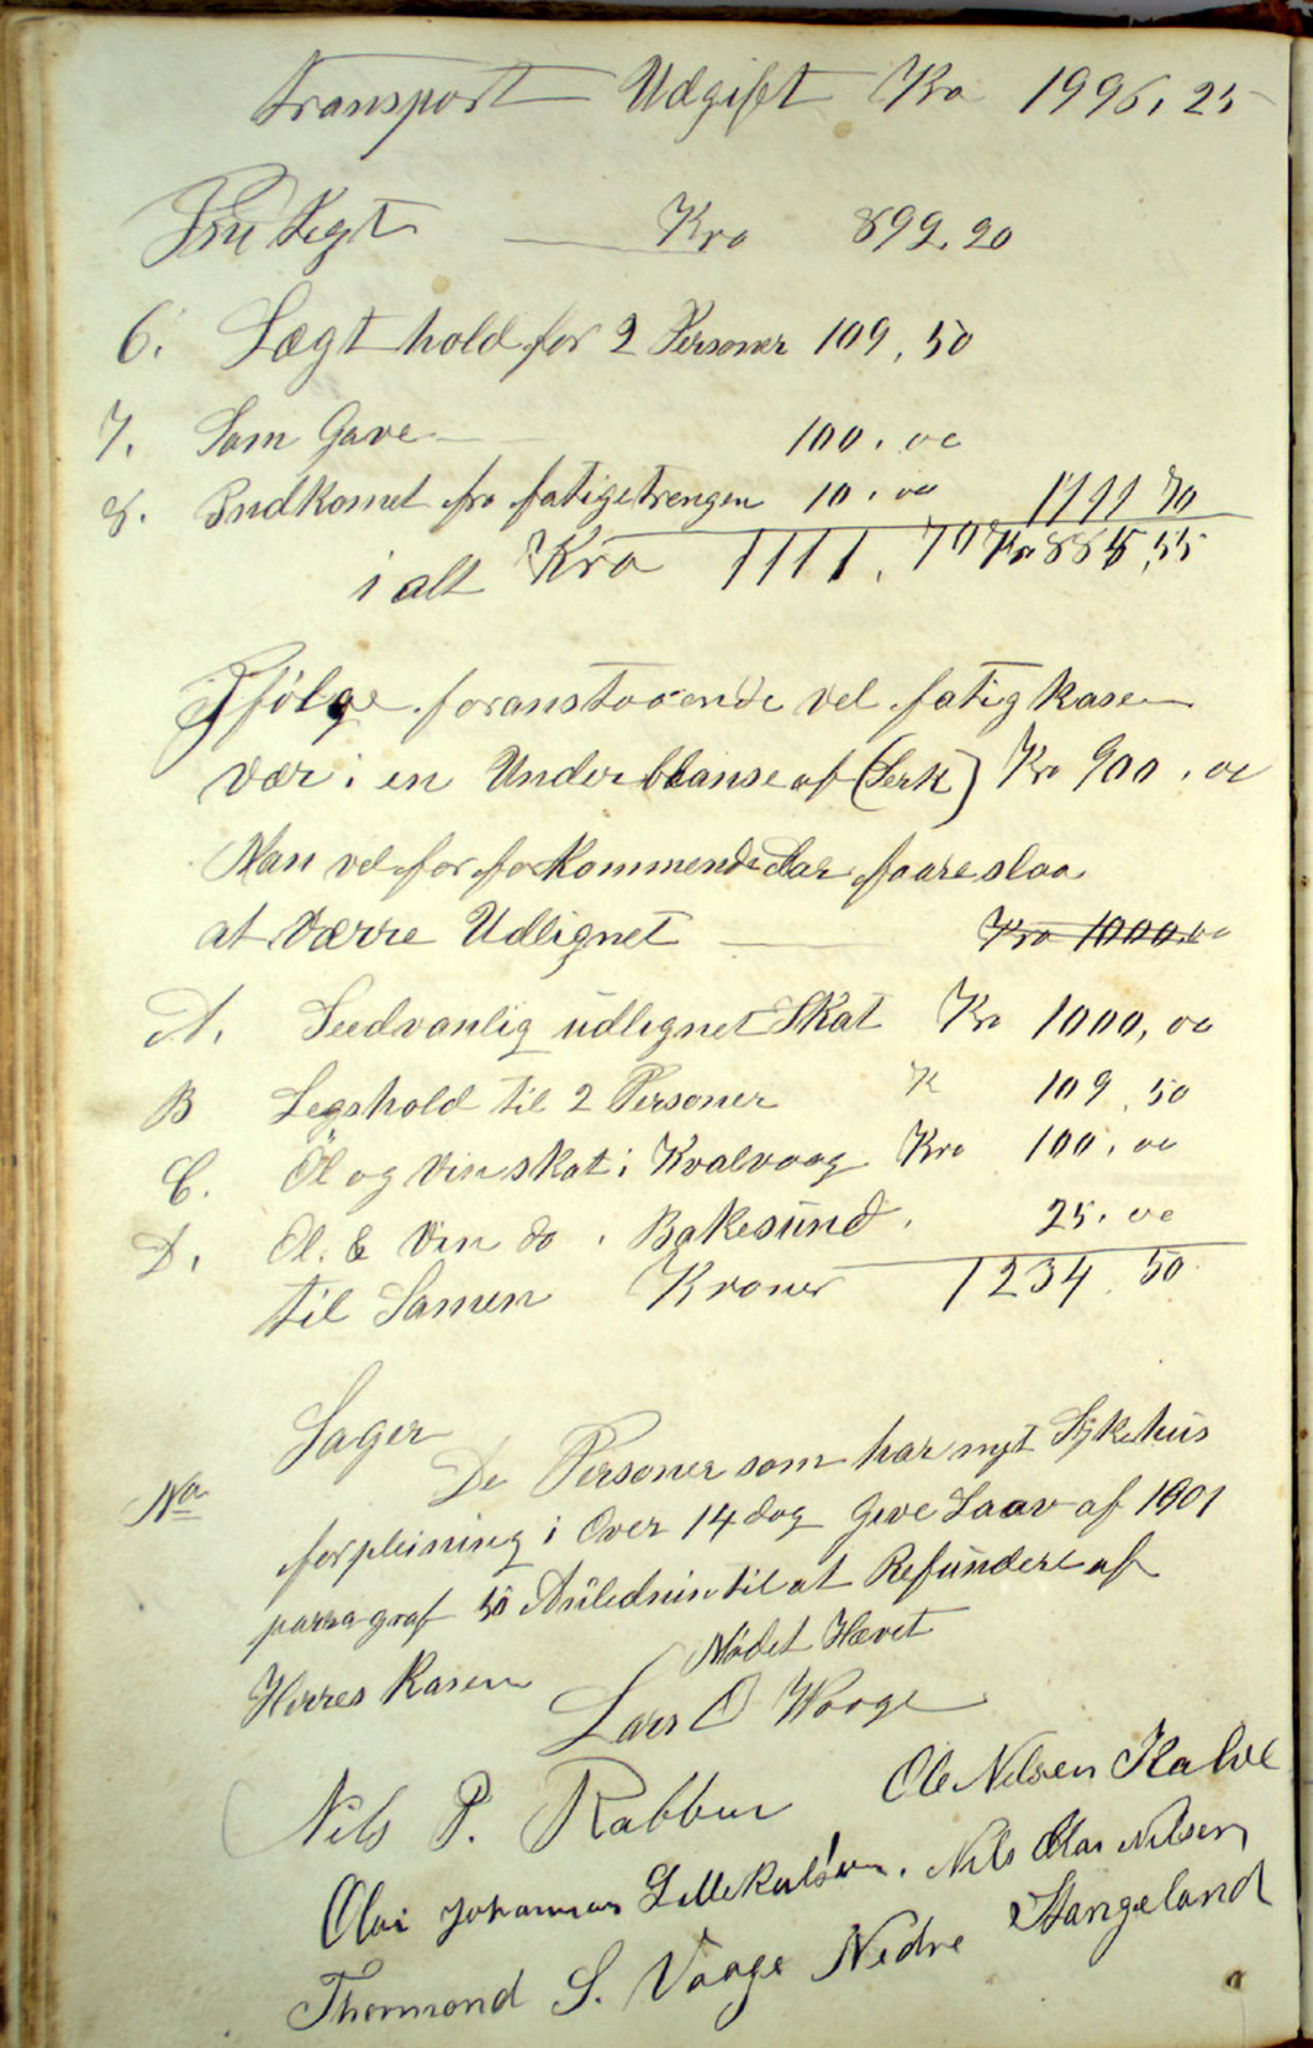 Transport Udgift Kro 1996,25
Kro 892.20
6. Lægt hold for 2 Personer 109,50
7. Som Gave 100.00
8. Indkomet fra fatigetrengen 10.00 1111 70
i alt Kro 1111.70 Kro 885,55
Ifölge foranstaaende vel fatigkasen
vær i en Underblanse af (Serk) Kro 900.00
Man vel for forkommende Aar faareslaa
at værre Udlignet Kro 1000.00
A. Seedvanlig udlignet Skat Kro 1000,00
B Legshold til 2 Personer K 109.50
C. Öl og Vin skat i Kvalvaag Kro 100.00
D. Öl. & Vin do. Bakesund. 25.00
til Samen Kroner 1234.50
Sager
No De Personer som har nyt Sykehus
forpleining i Over 14 dag Geve Laav af 1901
parragraf 50 Anlednin til at Refundere af
Herres Kasen Mödet Hævet
Lars O Waage
Nils P. Rabben Ole Nilsen Kalve
Olai Johannes Nils Olai Nilsen
Thormond S. Vaage Nedre Stangeland